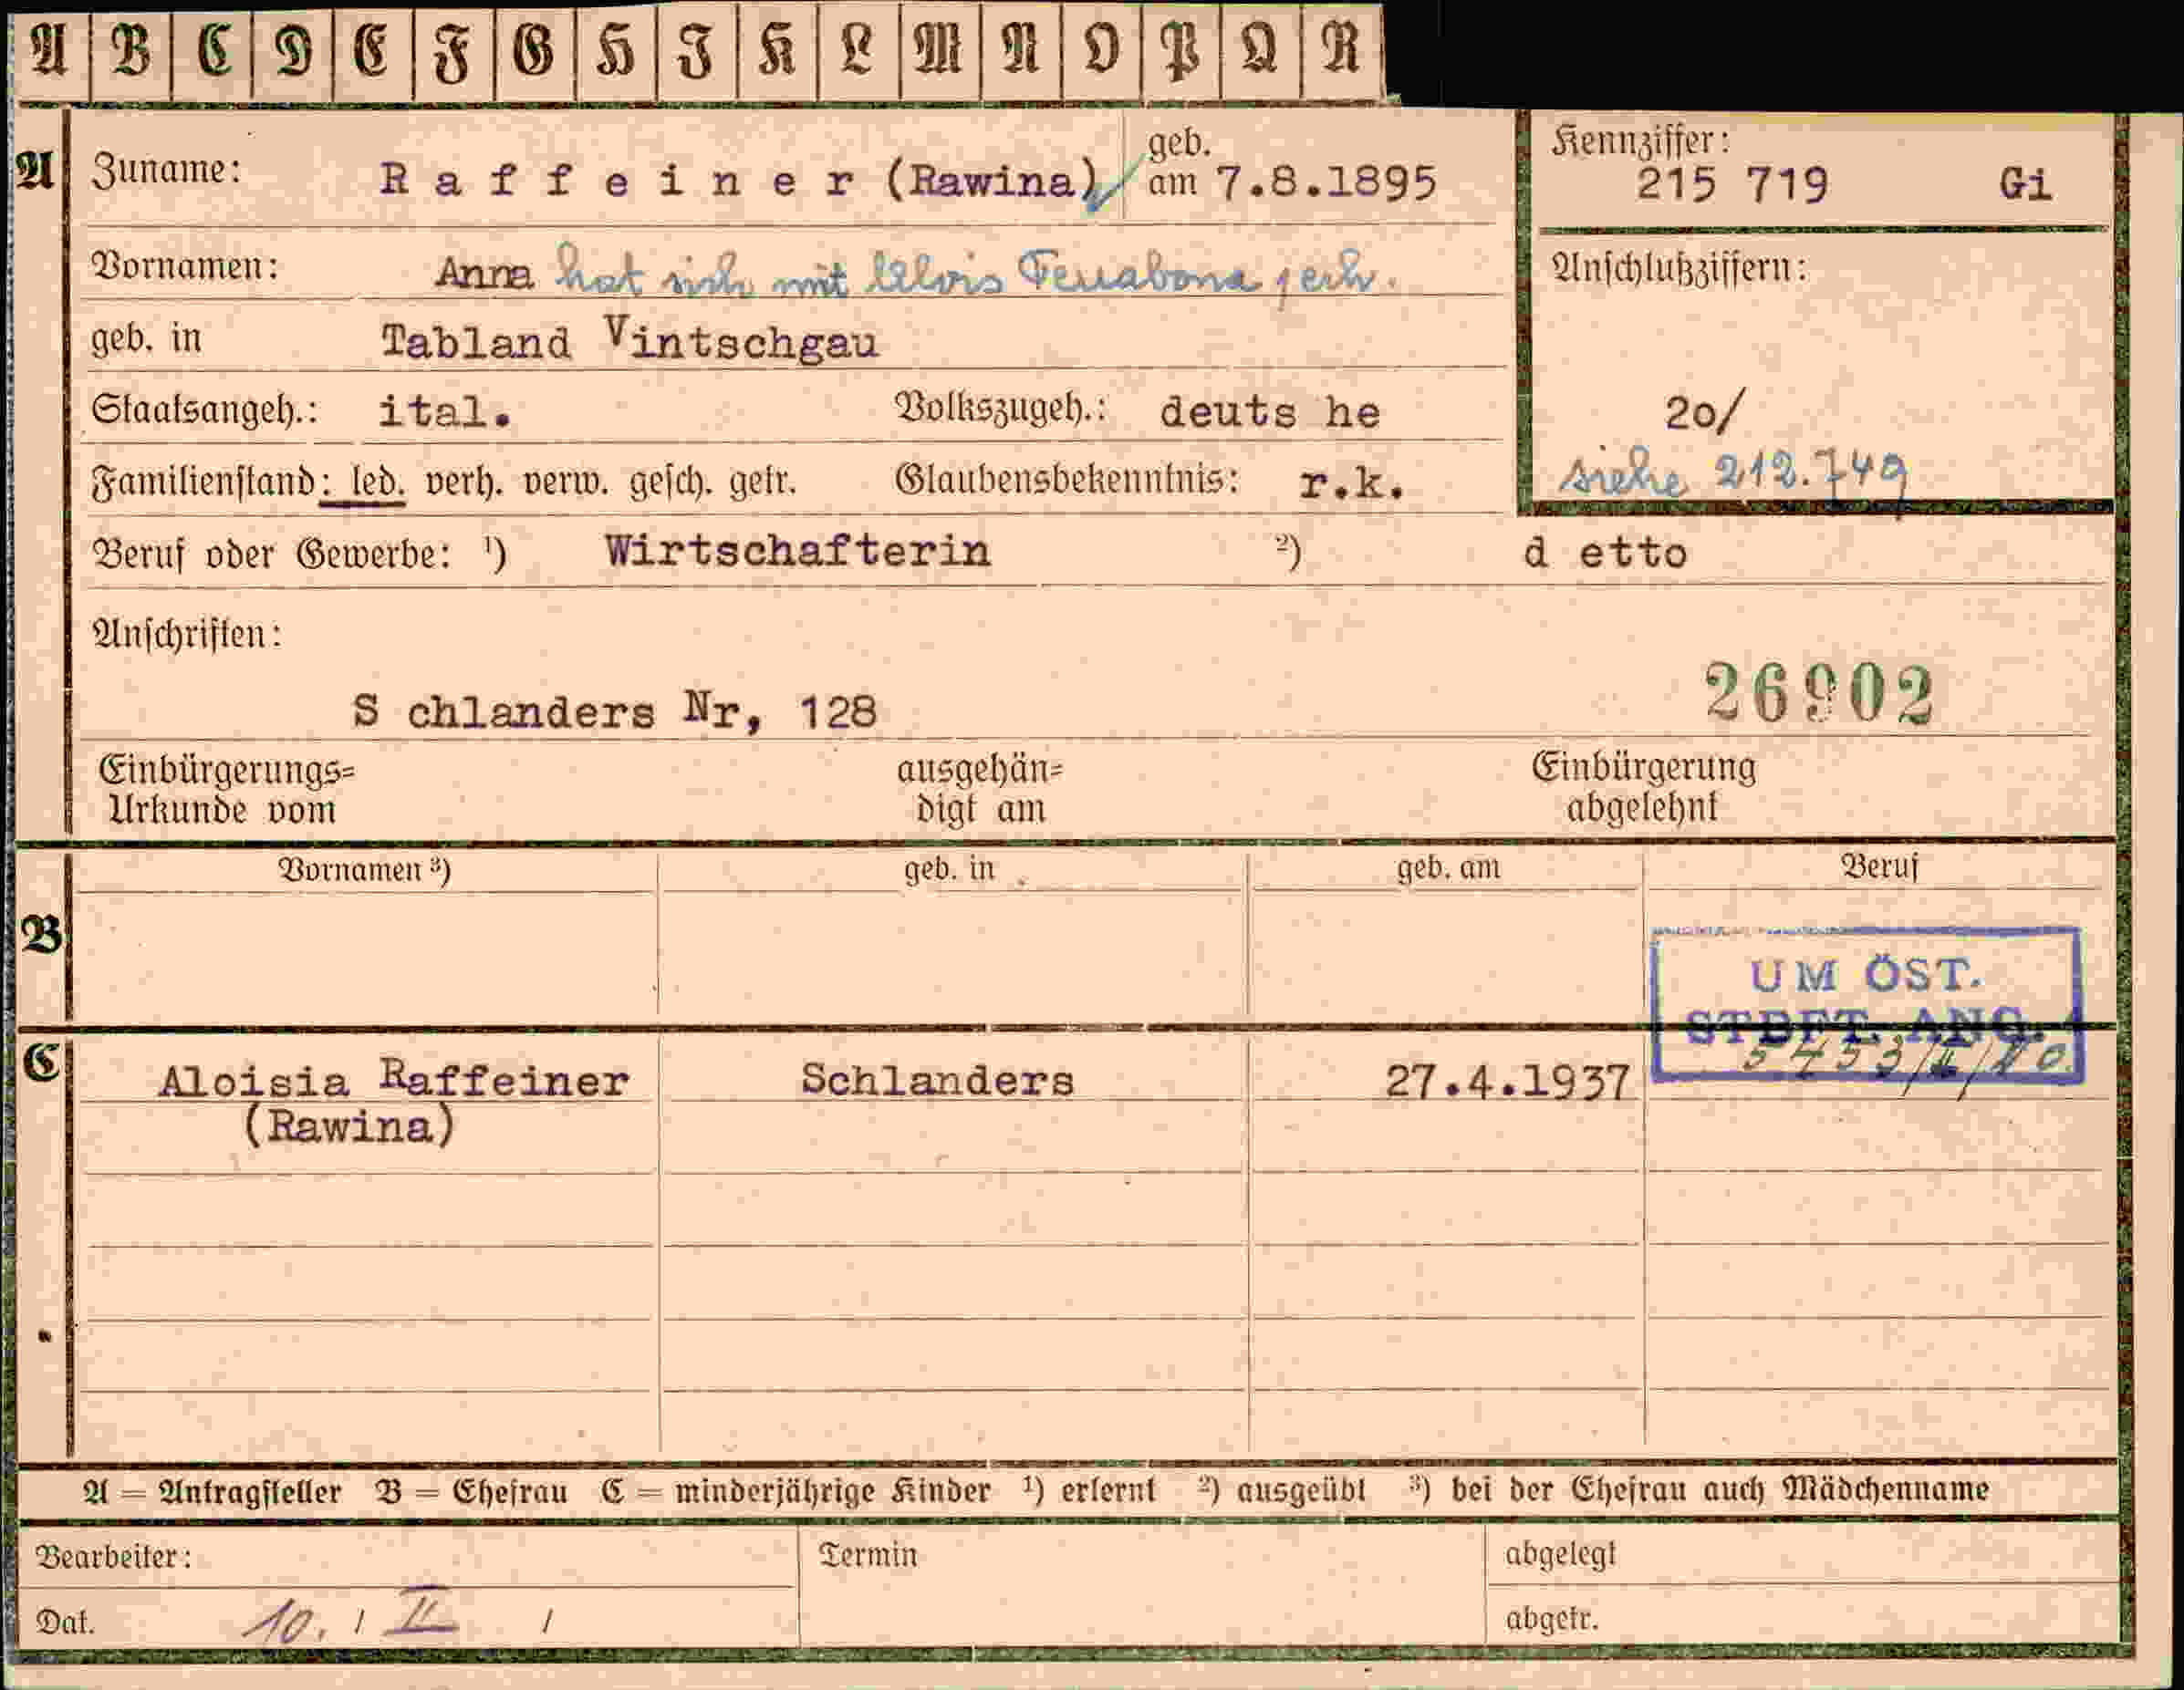 A B C D E F G H I K L M N O P Q R
A Zuname: Raffeiner (Rawina) geb. am 7.8.1895
Kennziffer: 215 719 Gi
Vornamen: Anna hat sich mit verh.
Anschlußziffern:
geb. in Tabland Vintschgau
Staatsangeh.: ital. Volkszugeh.: deuts he
20/
Familienstand: led. verh. verw. gesch. getr. Glaubensbekenntnis: r.k.
siehe 212.749
Beruf oder Gewerbe: ¹) Wirtschafterin ²) d etto
Anschriften:
26902
S chlanders Nr, 128
Einbürgerungs= ausgehän= Einbürgerung
Urkunde vom digt am abgelehnt
Vornamen ³) geb. in geb. am Beruf
B
UM ÖST.
STBFT. ANG.
C Aloisia Raffeiner Schlanders 27.4.1937
(Rawina)
A = Antragsteller B = Ehefrau C = minderjährige Kinder ¹) erlernt ²) ausgeübt ³) bei der Ehefrau auch Mädchenname
Bearbeiter: Termin abgelegt
Dat. 10. / II / abgetr.